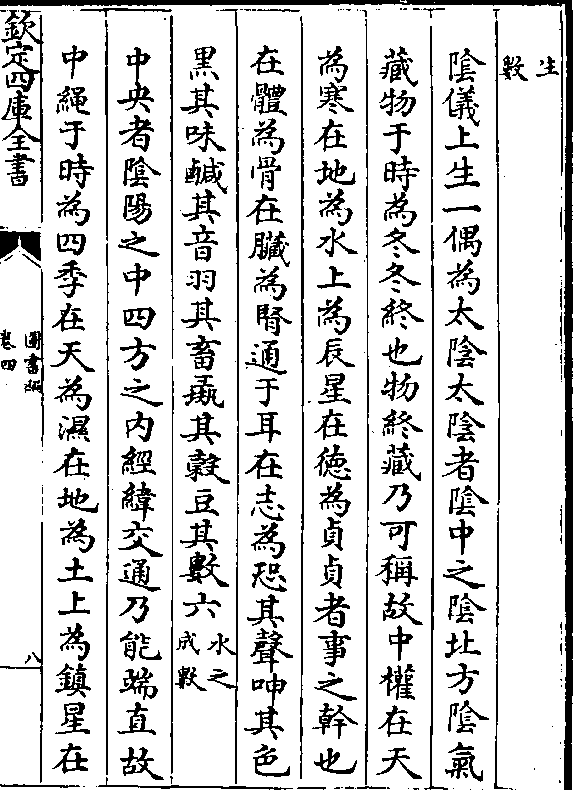 生
數
陰儀上生一偶為太陰太陰者陰中之陰北方陰氣
藏物于時為冬冬終也物終藏乃可稱故中權在天
為寒在地為水上為辰星在徳為貞貞者事之幹也
在體為骨在臟為腎通于耳在志為恐其聲呻其色
黒其味鹹其音羽其畜彘其穀豆其數六水之
成數
中央者陰陽之中四方之内經緯交通乃能端直故
中繩于時為四季在天為濕在地為土上為鎮星在
欽定四庫全書
圖書編
卷四
八